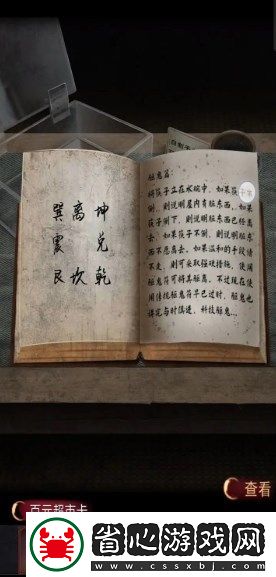 巽 离 坤
震 兑
艮 坎 乾
驱鬼篇：
将筷子立在水碗中，如果筷子不
倒，则说明屋内有脏东西，如果
筷子倒下，则说明脏东西已经离
去。如果筷子不倒，则说明脏东
西不愿离去。如果温和的手段请
不走，则可采取强硬措施，使用
驱鬼符可将其驱离。不过现在使
用传统驱鬼符早已过时，驱鬼也
讲究与时俱进，科技驱鬼...
查看
百元超市卡
省心游戏网
www.cssxbj.com